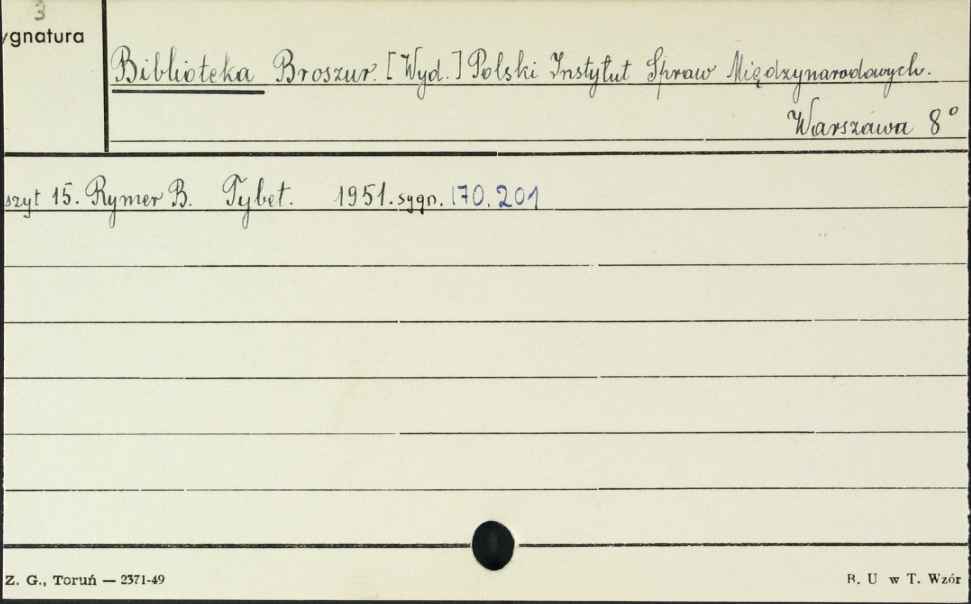 3
ygnatura
Biblioteka Broszur. [Wyd.] Polski Instytut Spraw Międzynarodowych.
Warszawa 8°
szyt 15. Rymer B. Tybet. 1951. sygn. 170.201
Z. G., Toruń — 2371-49
B. U w T. Wzór